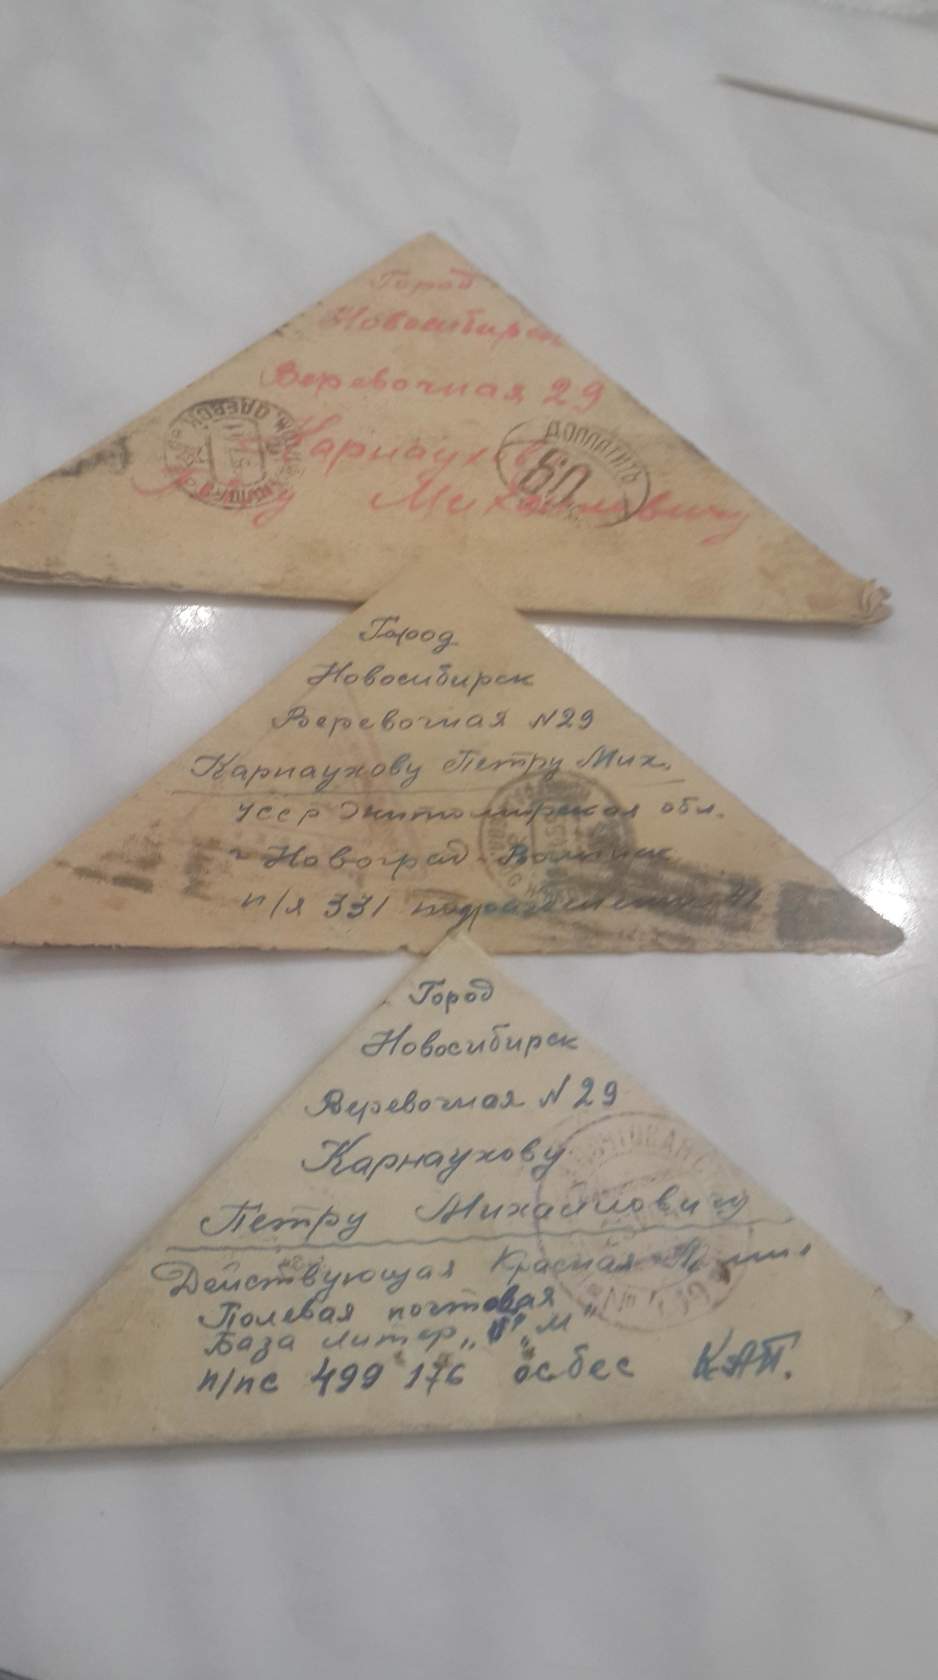 Город
Новосибирск
Веревочная 29
Карнаухову
Михайловичу
ДОПЛАТИТЬ
60
Город
Новосибирск
Веревочная №29
Карнаухову Петру Мих.
УССР Житомирская обл.
г Новоград-Волынск
п/я 331 подразделение
Город
Новосибирск
Веревочная №29
Карнаухову
Петру Михайловичу
Действующая Красная Армия
Полевая почтовая
База литер „ „М"
п/пс 499 176 осбес К.А.П.